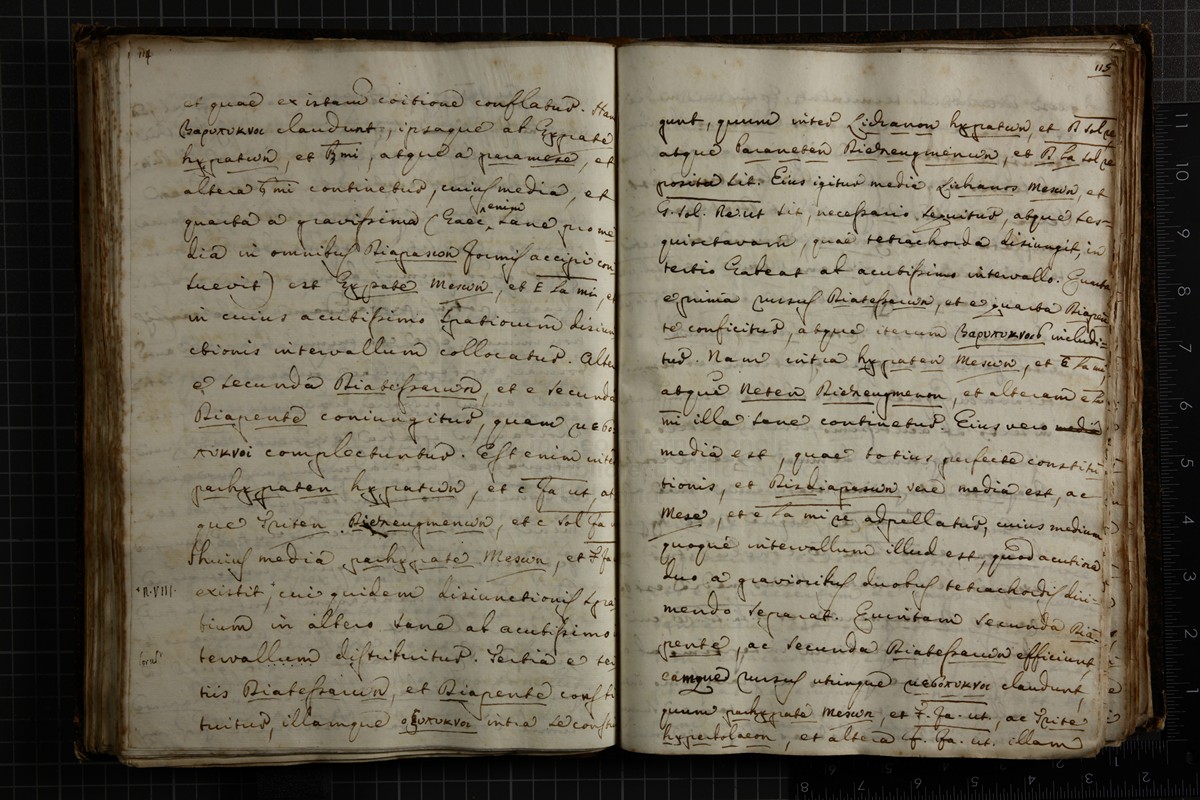 114
et quae ex istarum coitione conflatur. Han
βαρυπυκνοι claudunt, ipsaque ab Hypate
hypaton, et ♮ mi, atque a paramese, et
altera ♮ mi continetur, cuius media, et
quarta a gravissima (haec enim sane pro me
dia in omnibus Diapason formis accipi con
suevit) est Hypate Meson, et E la mi, et
in cuius acutissimo gratiorum disiun
ctionis intervallum collocatur. Alte
e secunda Diatessaron, et e secunda
Diapente coniungitur, quam μεσο
πυκνοι complectuntur. Est enim inte
parhypaten hypaton, et c fa ut, at
que Triten Diezeugmenon, et c sol fa
huius media parhypate Meson, et F fa
n. VIII.
existit; cui quidem disiunctionis
in altero sane ab acutissimo
tervallum distribuitur. Tertia e ter
tiis Diatessaron, et Diapente consti
tuitur, illamque οξυπυκνοι intra se consti
115
gunt, quum inter Lichanon hypaton, et D sol re
atque Paraneten Diezeugmenon, et D la sol re
posita sit. Eius igitur media Lichanos Meson, et
G. Sol. Re. ut sit, necessario sequitur, atque ses-
quioctavam, quae tetrachorda disiungit, in
tertio habeat ab acutissimo intervallo. Quarta
e prima rursus Diatessaron, et e quarta Diapen
te conficitur, atque iterum βαρυπυκνοις includi-
tur. Nam intra hypaten Meson, et E la mi,
atque Neten Diezeugmenon, et alteram e la
mi illa sane continetur. Eius vero
media est, quae totius perfecte constitu
tionis, et Disdiapason vere media est, ac
Mese, et a la mi re adpellatur, cuius medium
quoque intervallum illud est, quod acutiora
duo a gravioribus duobus tetrachordis diri-
mendo separat. Quintam secunda Dia
pente, ac secunda Diatessaron efficiunt,
eamque rursus utrinque μεσοπυκνοι claudunt,
quum parhypate Meson, et F. fa. ut, ac Trite
hyperbolaeon, et altera F. fa. ut. illam